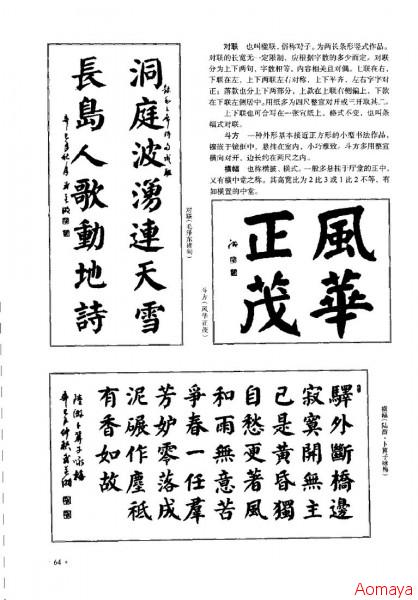 洞庭波湧連天雪
長島人歌動地詩
对联(毛泽东诗句)
对联 也叫楹联,俗称对子,为两长条形竖式作品。
对联的长宽无一定限制,应根据字数的多少而定,对联
分为上下两句,字数相等,内容相关且对偶。上联在右,
下联在左,上下两联左右对称,上下平齐,左右字字对
正;落款也分上下两部分,上款在上联右侧偏上,下款
在下联左侧居中。用纸多为四尺整宣对开或三开取其二。
上下联也可合写在一张宣纸上,格式不变,也叫条
幅式对联。
斗方 一种外形基本接近正方形的小型书法作品,
镶嵌于镜框中,悬挂在室内,小巧雅致。斗方多用整宣
横向对开,边长约在两尺之内。
横幅 也称横披、横式。一般多悬挂于厅堂的正中,
又有横中堂之称。其高宽比为2比3或1比2不等,有
如横置的中堂。
風華
正茂
斗方(风华正茂)
驛外斷橋邊
寂寞開無主
已是黄昏獨
自愁更著風
和雨無意苦
爭春一任羣
芳妒零落成
泥碾作塵祗
有香如故
陸游卜算子咏梅
辛巳年仲秋
横幅(陆游·卜算子咏梅)
64
Aomaya